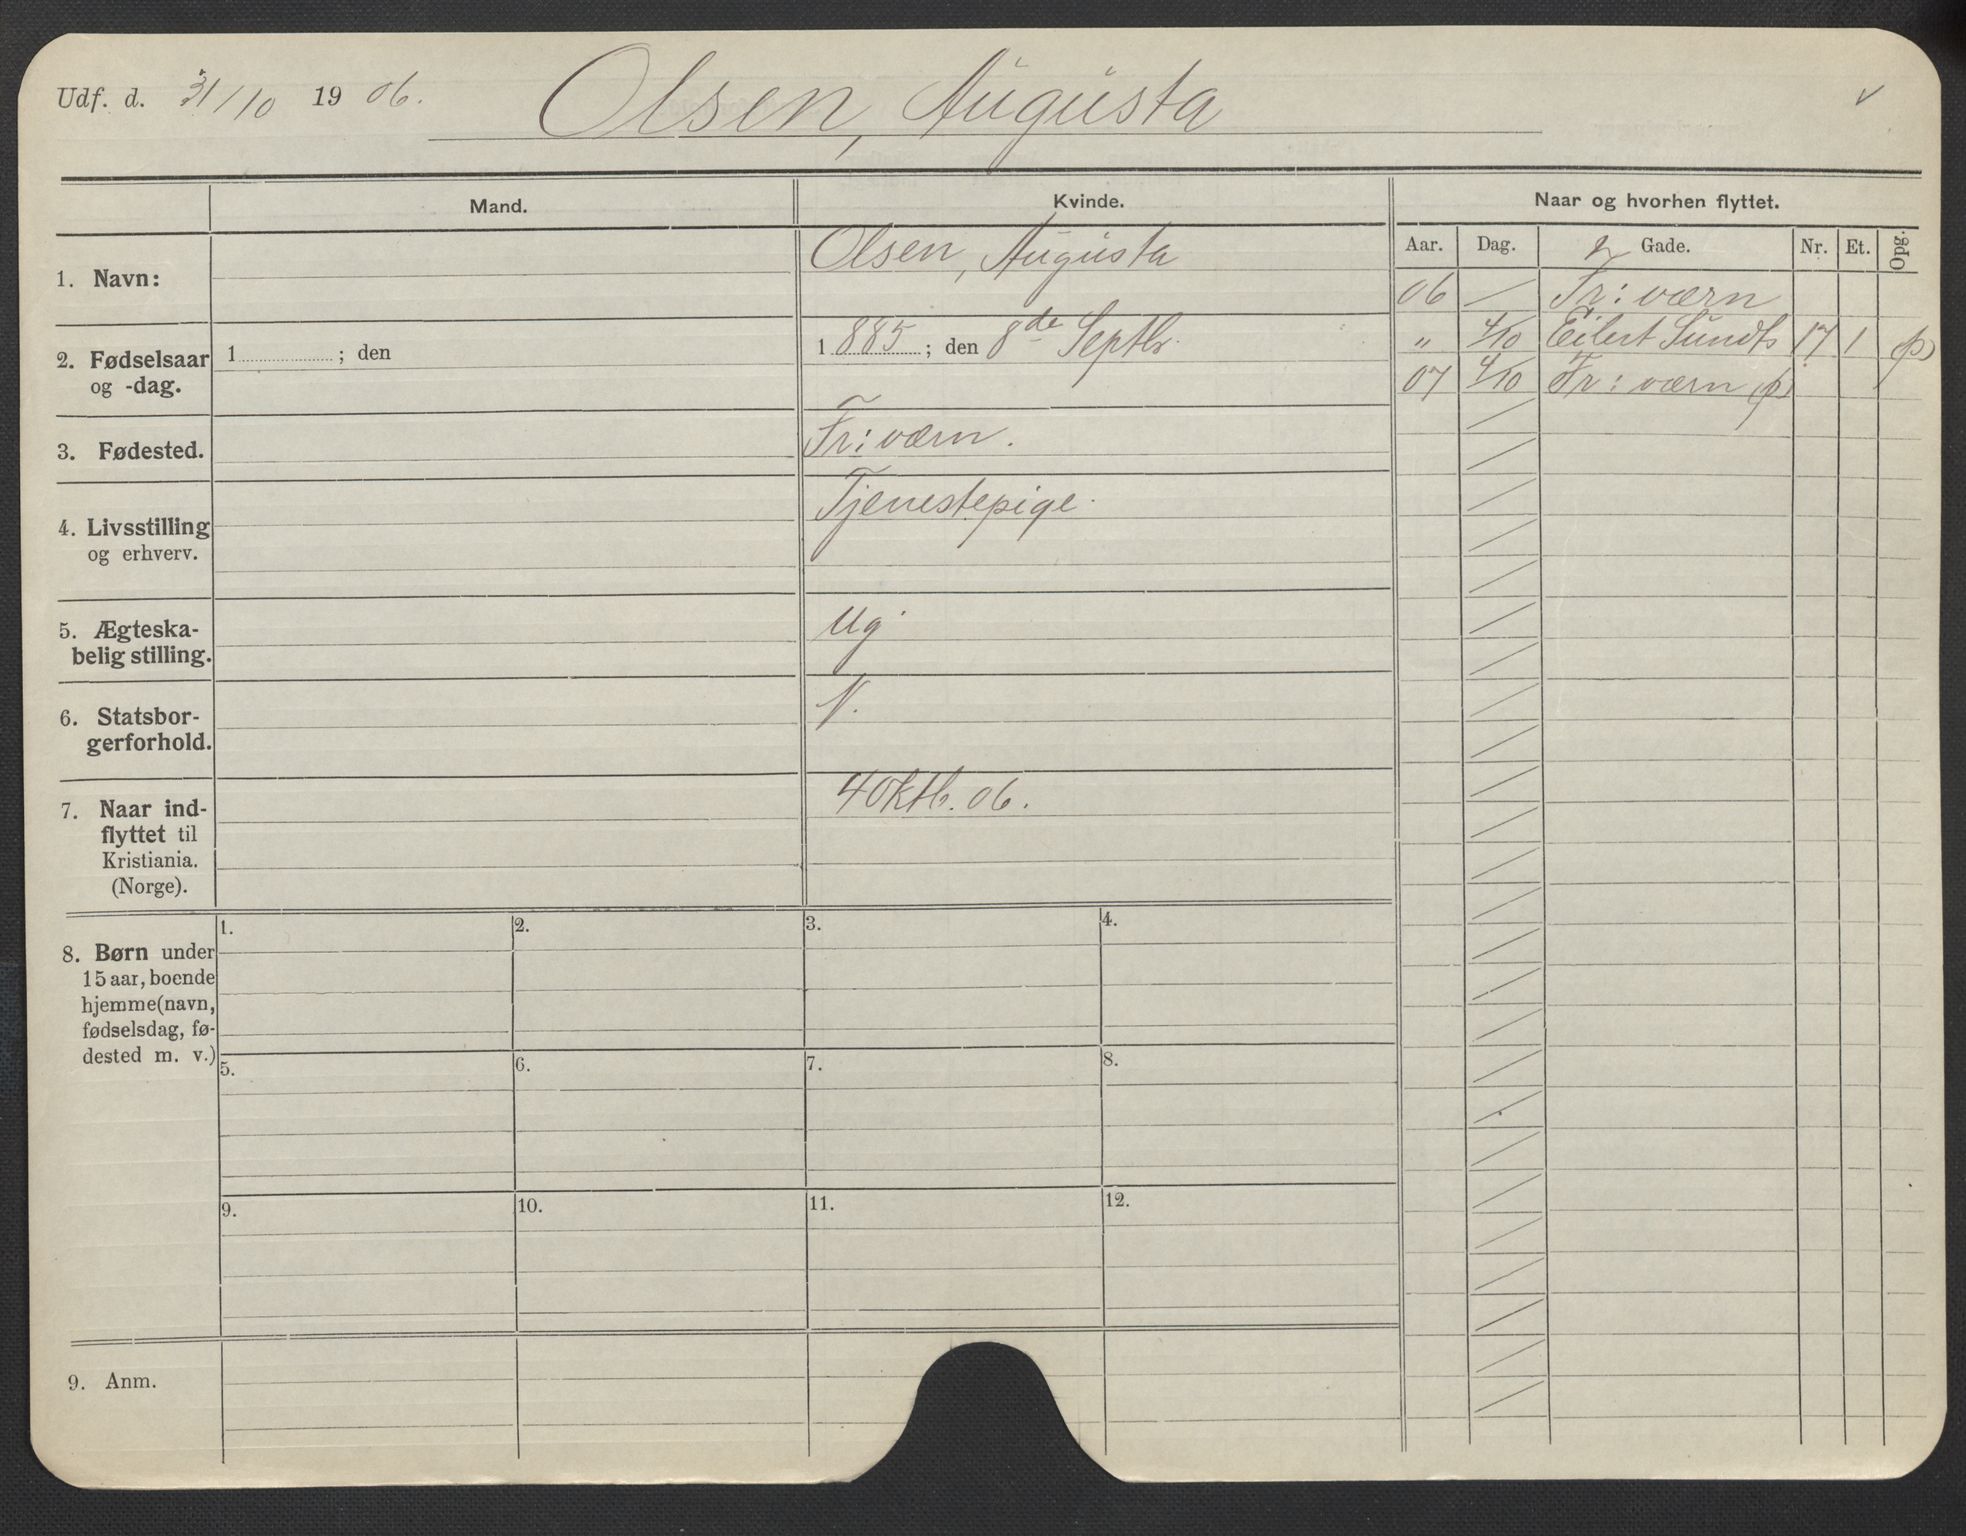 Udf. d. 31/10 1906. Olsen, Augusta
Mand.
Kvinde.
Naar og hvorhen flyttet.
Aar. Dag. Gade. Nr. Et. Opg.
1. Navn:
Olsen, Augusta
2. Fødselsaar
og -dag.
1 ; den
1885 ; den 8de Septbr.
3. Fødested.
Fr: værn.
4. Livsstilling
og erhverv.
Tjenestepige.
5. Ægteska-
belig stilling.
Ug
6. Statsbor-
gerforhold.
N.
7. Naar ind-
flyttet til
Kristiania.
(Norge).
4 Oktb. 06.
06 / Fr: værn
" 4/10 Eilert Sundts 17 1 (p)
07 4/10 Fr: værn (p)
8. Børn under
15 aar, boende
hjemme (navn,
fødselsdag, fø-
dested m. v.)
1. 2. 3. 4.
5. 6. 7. 8.
9. 10. 11. 12.
9. Anm.